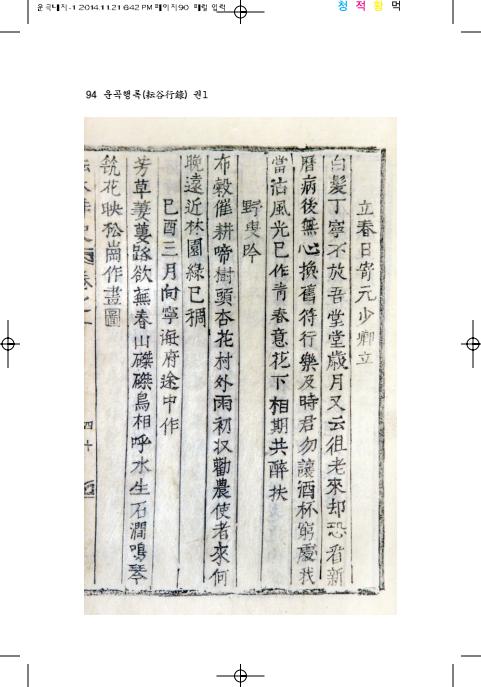 운곡내지-1 2014.11.21 6:42 PM 페이지90 매킬 입력
청 적 황 먹
94 운곡행록(耘谷行錄) 권1
立春日寄元少卿立
白髮丁寧不放吾堂堂歲月又云徂老來却恐看新
曆病後無心換舊符行樂及時君勿讓酒杯窮處我
當沽風光已作靑春意花下相期共醉扶
野叟吟
布穀催耕啼樹頭杏花村外雨初收勸農使者來何
晚遠近林園綠已稠
己酉三月向寧海府途中作
芳草萋萋蹊欲蕪春山磔磔鳥相呼水生石澗鳴琴
筑花映松崗作畫圖
四十